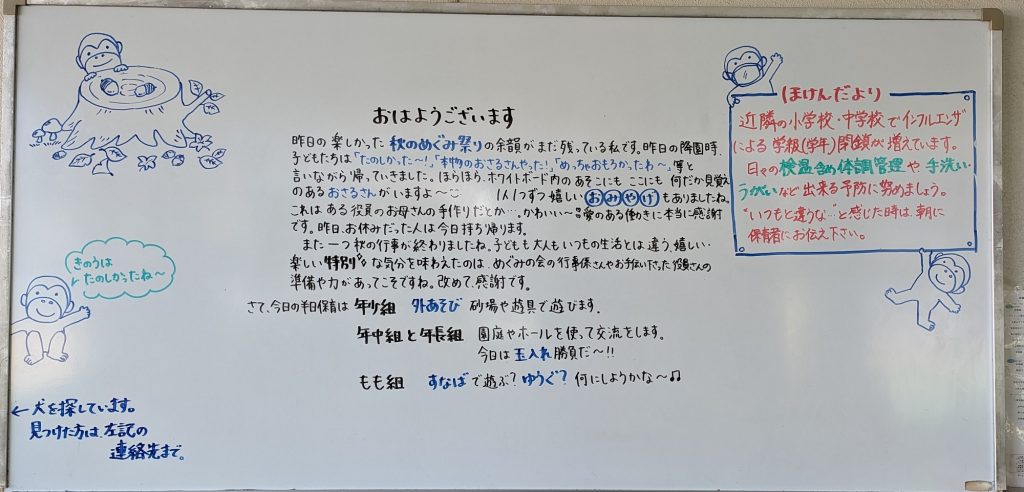 おはようございます
昨日の楽しかった 秋のめぐみ祭りの余韻がまだ残っている私です。昨日の降園時、
子どもたちは「たのしかった〜!」「本物のおさるさんやった!」「めっちゃおもろかったわ〜」等と
言いながら帰っていきました。ほらほら、ホワイトボード内のあそこにも ここにも 何だか見覚え
のある おさるさんがいますよ〜 1人1つずつ嬉しい おみやげ もありましたね。
これは ある役員のお母さんの手作りだとか…。かわいい〜 愛のある働きに本当に感謝
です。昨日、お休みだった人は今日持ち帰ります。
また一つ秋の行事が終わりましたね。子どもも大人もいつもの生活とは違う、嬉しい・
楽しい“特別”な気分を味わえたのは、めぐみの会の行事係さんやお手伝い下さった役員さんの
準備や力があってこそですね。改めて、感謝です。
さて、今日の半日保育は 年少組 外あそび 砂場や遊具で遊びます。
年中組と年長組 園庭やホールを使って交流をします。
今日は 玉入れ勝負だ〜!!
もも組 すなばで遊ぶ? ゆうぐ? 何にしようかな〜♫
ほけんだより
近隣の小学校・中学校でインフルエンザ
による 学級(学年)閉鎖が増えています。
日々の検温含め体調管理や、手洗い・
うがいなど出来る予防に努めましょう。
“いつもと違うな…”と感じた時は、朝に
保育者にお伝え下さい。
きのうは
たのしかったね〜
←犬を探しています。
見つけた方は、左記の
連絡先まで。